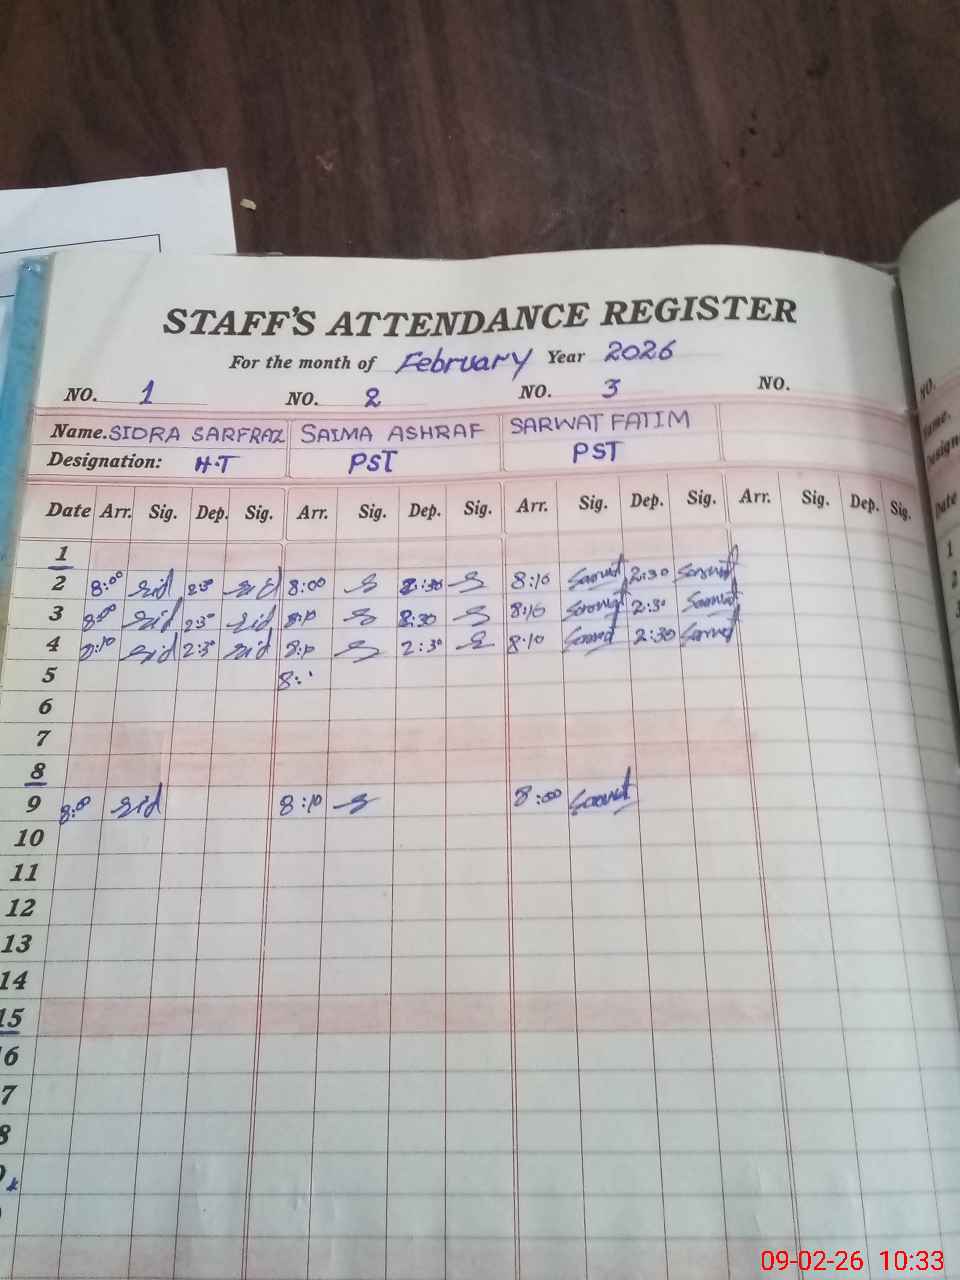 STAFF'S ATTENDANCE REGISTER
For the month of February Year 2026
NO. 1 NO. 2 NO. 3 NO.
Name. SIDRA SARFRAZ SAIMA ASHRAF SARWAT FATIM
Designation: H.T PST PST
Date Arr. Sig. Dep. Sig. Arr. Sig. Dep. Sig. Arr. Sig. Dep. Sig. Arr. Sig. Dep. Sig.
1
2 8:00 Sid 2:30 Sid 8:00 2:30 8:10 Sarwat 2:30 Sarwat
3 8:00 Sid 2:30 Sid 8:10 2:30 8:10 Sarwat 2:30 Sarwat
4 8:10 Sid 2:30 Sid 8:10 2:30 8:10 Sarwat 2:30 Sarwat
5 8:
6
7
8
9 8:00 Sid 8:10 8:00 Sarwat
10
11
12
13
14
15
6
7
8
NO.
Name.
Design
Date
1
2
09-02-26 10:33